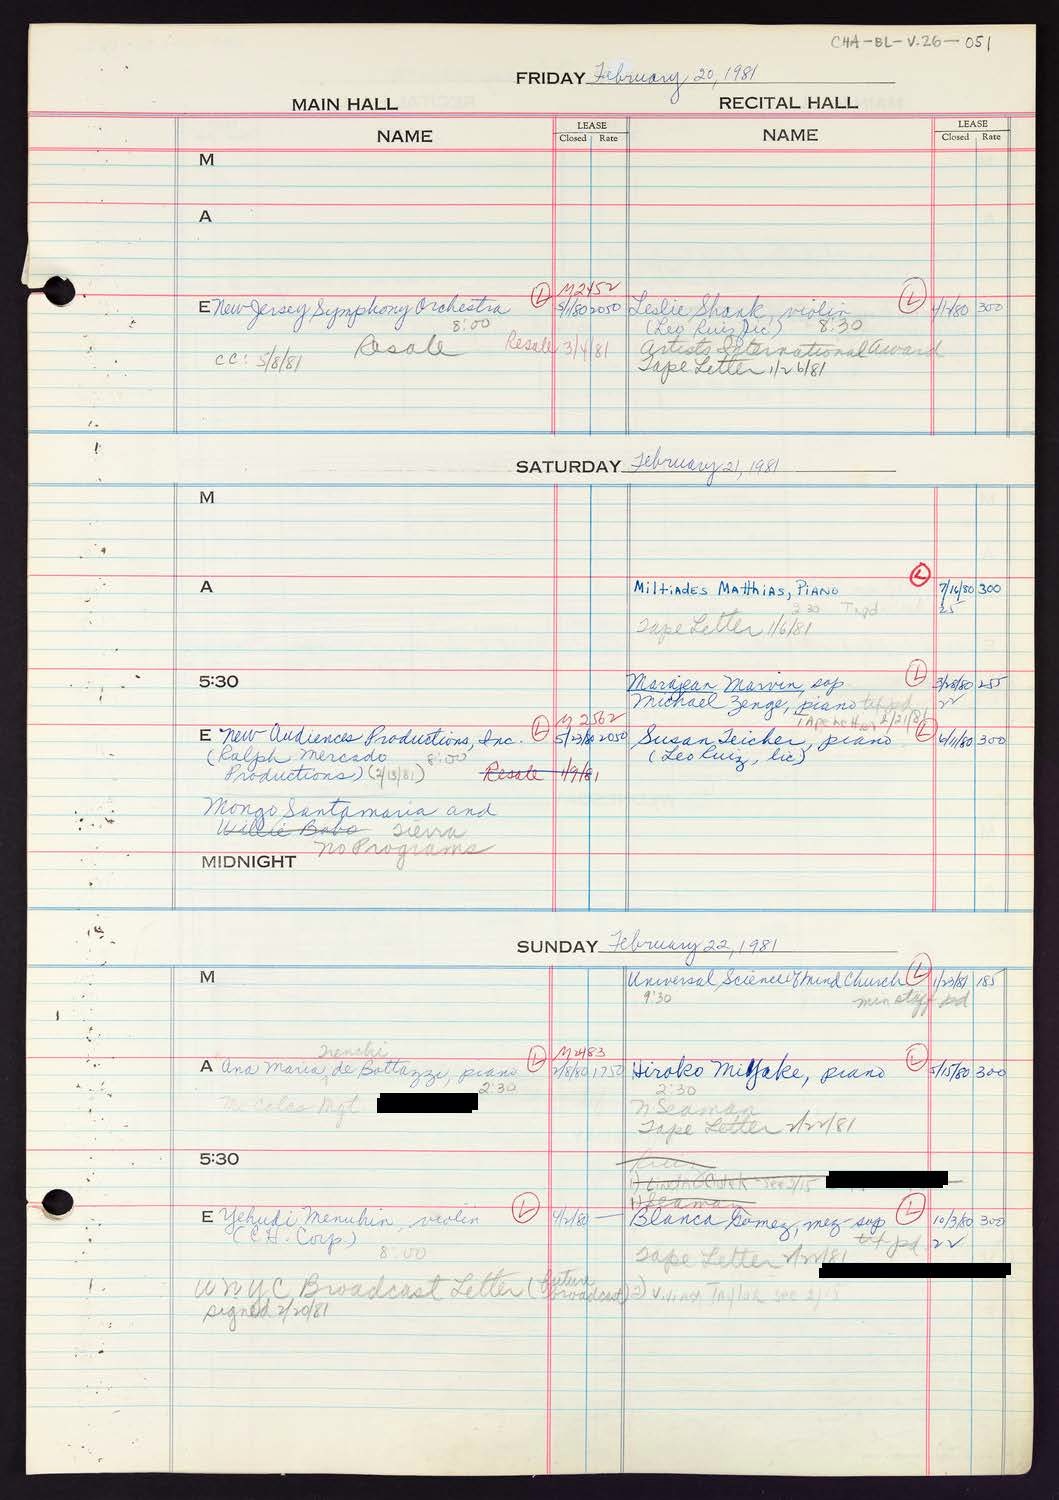 CHA-BL-V.26-051
FRIDAY February 20, 1981
MAIN HALL RECITAL HALL
NAME LEASE Closed Rate NAME LEASE Closed Rate
M
A
M2452
E New Jersey Symphony Orchestra L 5/1/80 2050 Leslie Shank, violin L 300
8:00 (Leo Ruiz, lic) 8:30
Resale Resale 3/4/81 Artists International Award
cc: 5/8/81 Tape Letter 1/26/81
SATURDAY February 21, 1981
M
A Miltiades Matthias, Piano L 7/16/80 300
2:30 25
Tape Letter 1/6/81
5:30 Marajean Marvin, sop L 3/28/80 255
Michael Zenge, piano 22
M 2562 Tape Letter 2/21/81
E New Audiences Productions, Inc. L 5/23/80 2050 Susan Teicher, piano L 6/11/80 300
(Ralph Mercado 8:00 (Leo Ruiz, lic)
Productions) (2/13/81) Resale 1/9/81
Mongo Santamaria and
Willie Bobo Sierra
No Programs
MIDNIGHT
SUNDAY February 22, 1981
M Universal Science of Mind Church L 1/23/81 185
9:30 min staff pd
Trenchi M2483
A Ana Maria de Bottazzi, piano L 2/8/80 1750 Hiroko Miyake, piano L 5/15/80 300
2:30 2:30
Mgt N Seaman
Tape Letter 2/22/81
5:30
see 3/15
E Yehudi Menuhin, violin L 4/2/80 — Blanca Gomez, mez-sop L 10/3/80 300
(C.H. Corp.) pd 22
8:00 Tape Letter 2/22/81
WNYC Broadcast Letter (future broadcast) 2) Vivian Taylor see
signed 2/20/81